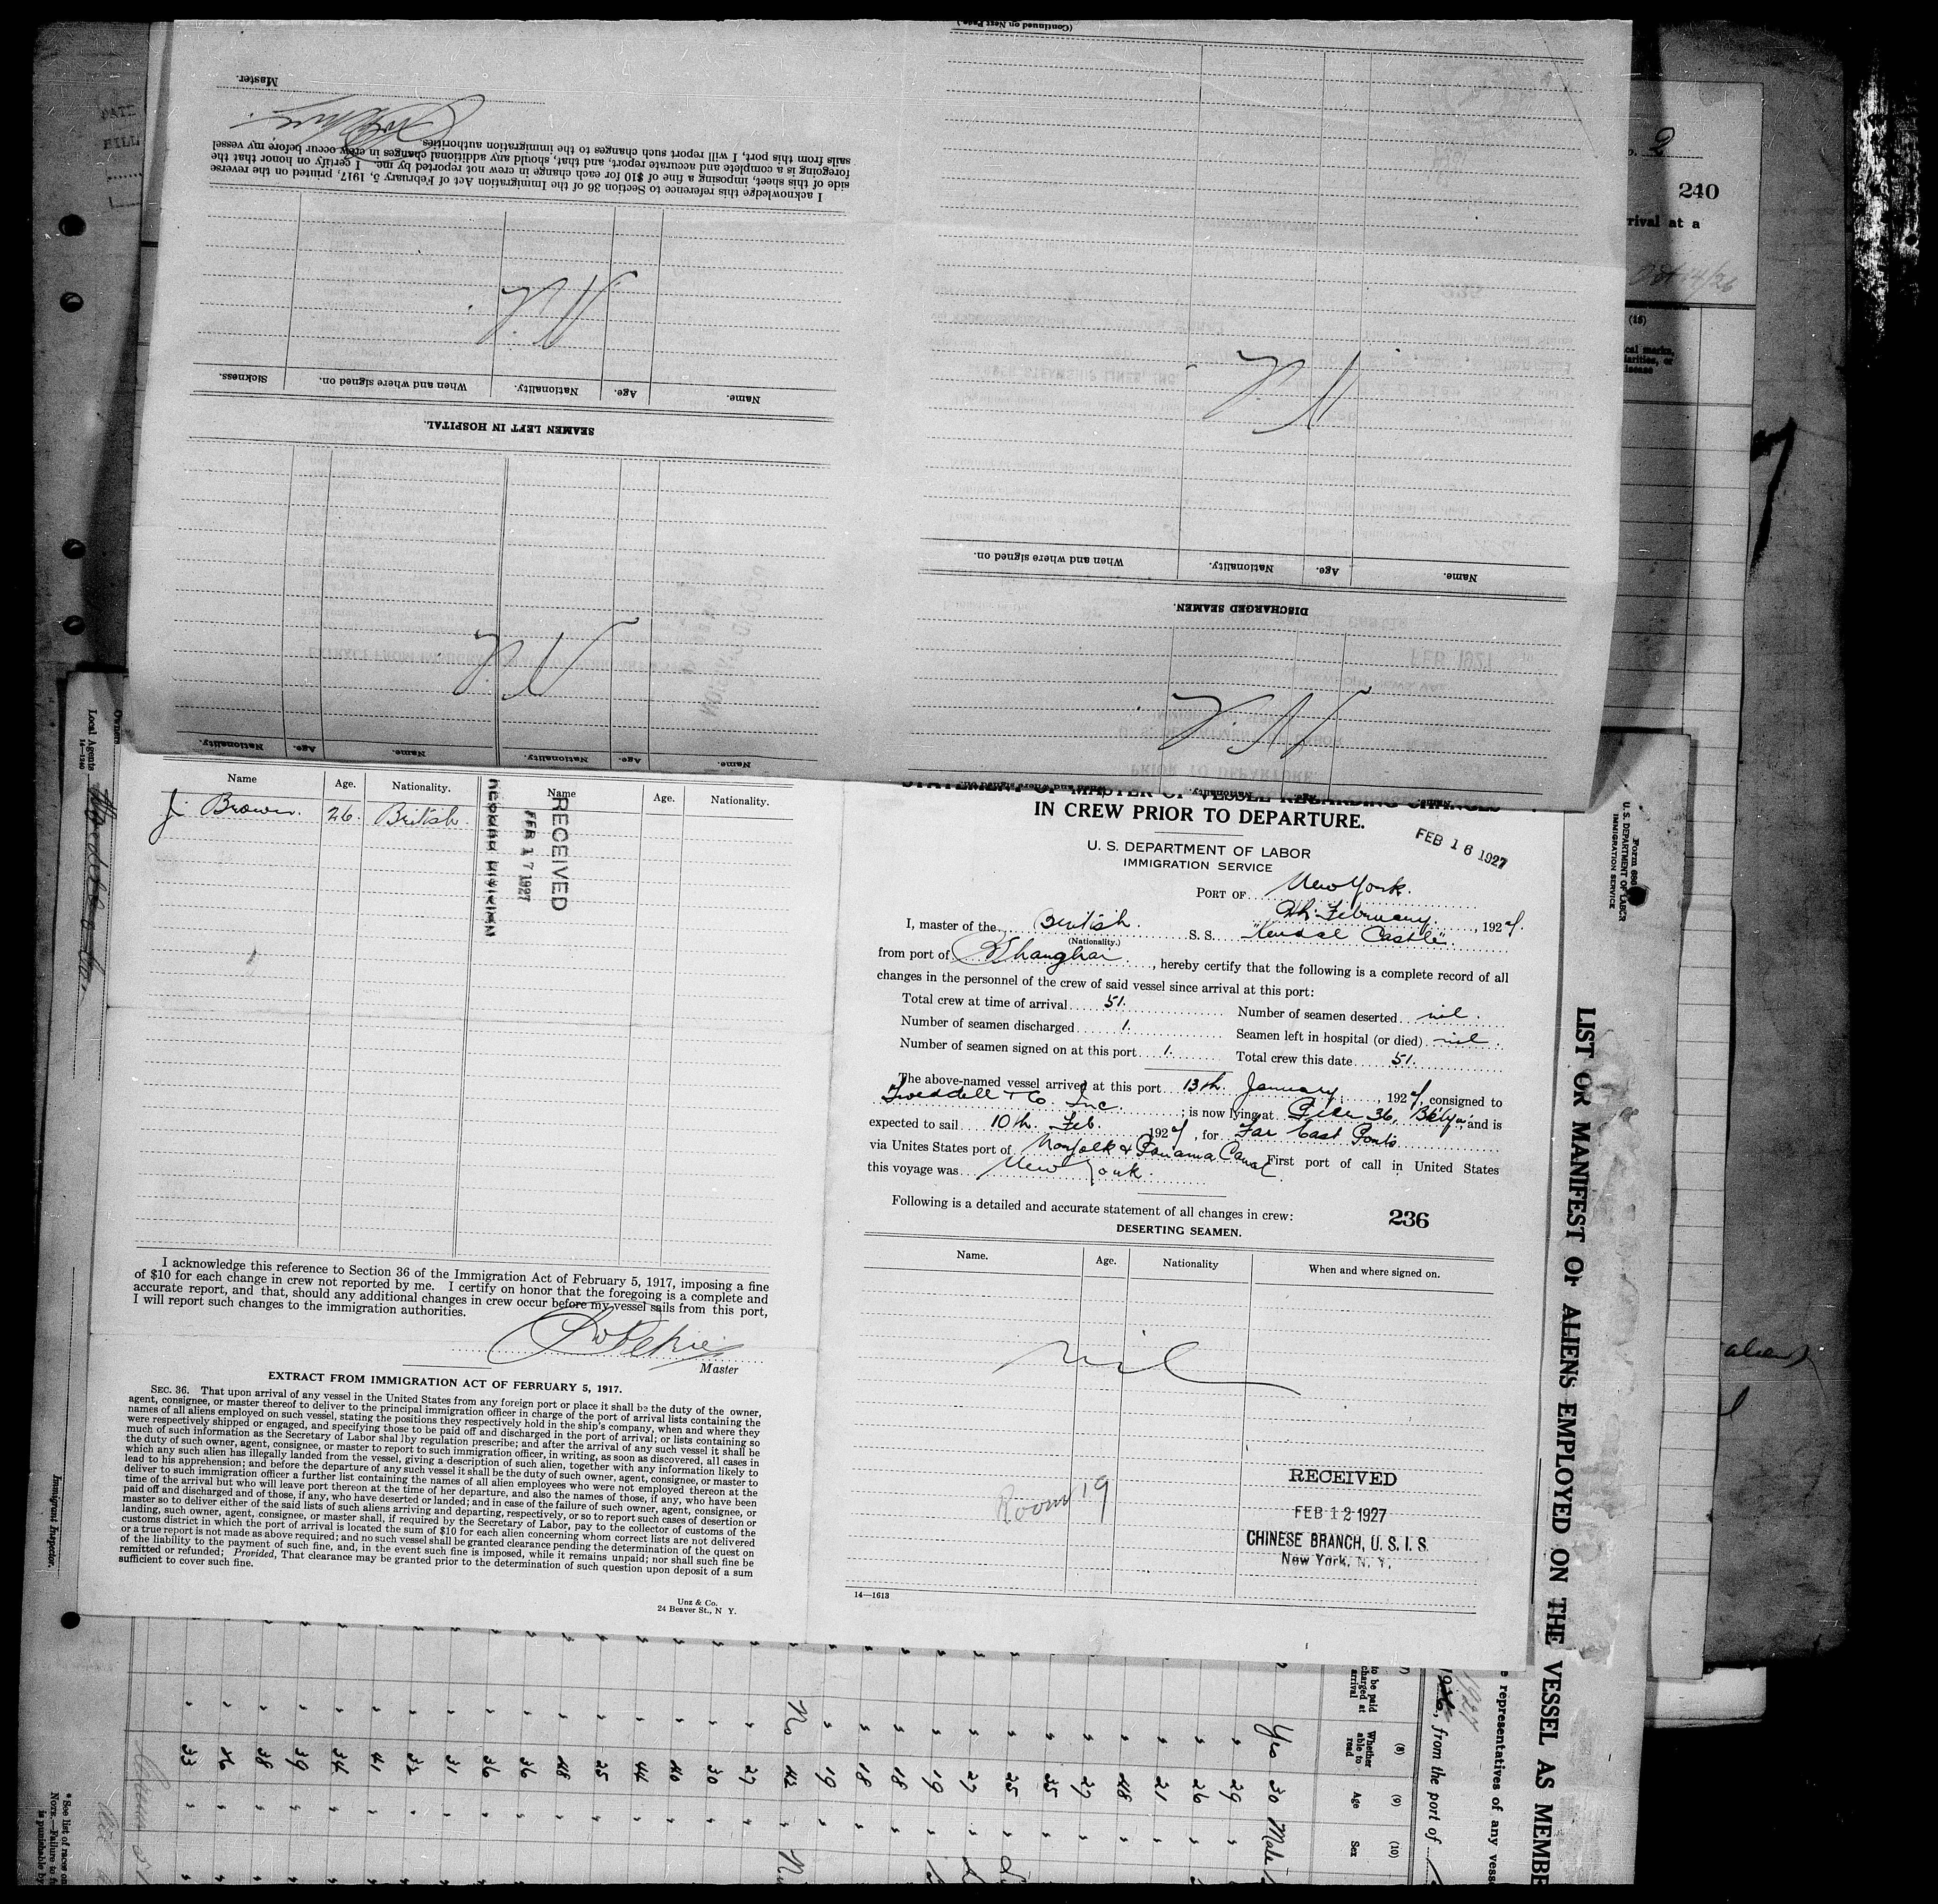 STATEMENT OF MASTER OF VESSEL REGARDING CHANGES
IN CREW PRIOR TO DEPARTURE.
FEB 16 1927
U. S. DEPARTMENT OF LABOR
IMMIGRATION SERVICE
PORT OF New York.
9th February, 1927.
I, master of the British S. S. "Kendal Castle"
(Nationality.)
from port of Shanghai, hereby certify that the following is a complete record of all
changes in the personnel of the crew of said vessel since arrival at this port:
Total crew at time of arrival 51. Number of seamen deserted nil.
Number of seamen discharged 1. Seamen left in hospital (or died) nil.
Number of seamen signed on at this port 1. Total crew this date 51.
The above-named vessel arrived at this port 13th. January, 1927, consigned to
Tweddell & Co. Inc. ; is now lying at Pier 36, Bklyn; and is
expected to sail 10th. Feb. 1927, for Far East Ports
via Unites States port of Norfolk & Panama Canal First port of call in United States
this voyage was New York.
Following is a detailed and accurate statement of all changes in crew:
236
DESERTING SEAMEN.
Name. Age. Nationality When and where signed on.
nil
Room 19
RECEIVED
FEB 12 1927
CHINESE BRANCH, U. S. I. S.
New York, N. Y.
14—1613
Name Age. Nationality. Name Age. Nationality.
J. Brown. 26. British.
RECEIVED
FEB 17 1927
I acknowledge this reference to Section 36 of the Immigration Act of February 5, 1917, imposing a fine
of $10 for each change in crew not reported by me. I certify on honor that the foregoing is a complete and
accurate report, and that, should any additional changes in crew occur before my vessel sails from this port,
I will report such changes to the immigration authorities.
Master
EXTRACT FROM IMMIGRATION ACT OF FEBRUARY 5, 1917.
SEC. 36. That upon arrival of any vessel in the United States from any foreign port or place it shall be the duty of the owner,
agent, consignee, or master thereof to deliver to the principal immigration officer in charge of the port of arrival lists containing the
names of all aliens employed on such vessel, stating the positions they respectively hold in the ship's company, when and where they
were respectively shipped or engaged, and specifying those to be paid off and discharged in the port of arrival; or lists containing so
much of such information as the Secretary of Labor shal lby regulation prescribe; and after the arrival of any such vessel it shall be
the duty of such owner, agent, consignee, or master to report to such immigration officer, in writing, as soon as discovered, all cases in
which any such alien has illegally landed from the vessel, giving a description of such alien, together with any information likely to
lead to his apprehension; and before the departure of any such vessel it shall be the duty of such owner, agent, consignee, or master to
deliver to such immigration officer a further list containing the names of all alien employees who were not employed thereon at the
time of the arrival but who will leave port thereon at the time of her departure, and also the names of those, if any, who have been
paid off and discharged and of those, if any, who have deserted or landed; and in case of the failure of such owner, agent, consignee, or
master so to deliver either of the said lists of such aliens arriving and departing, respectively, or so to report such cases of desertion or
landing, such owner, agent, consignee, or master shall, if required by the Secretary of Labor, pay to the collector of customs of the
customs district in which the port of arrival is located the sum of $10 for each alien concerning whom correct lists are not delivered
or a true report is not made as above required; and no vessel shall be granted clearance pending the determination of the quest on
of the liability to the payment of such fine, and, in the event such fine is imposed, while it remains unpaid; nor shall such fine be
remitted or refunded; Provided, That clearance may be granted prior to the determination of such question upon deposit of a sum
sufficient to cover such fine.
Unz & Co.
24 Beaver St., N Y.
(Continued on Next Page.)
DISCHARGED SEAMEN.
Name. Age. Nationality. When and where signed on.
SEAMEN LEFT IN HOSPITAL.
Name. Age. Nationality. When and where signed on. Sickness.
I acknowledge this reference to Section 36 of the Immigration Act of February 5, 1917, printed on the reverse
side of this sheet, imposing a fine of $10 for each change in crew not reported by me. I certify on honor that the
foregoing is a complete and accurate report, and that, should any additional changes in crew occur before my vessel
sails from this port, I will report such changes to the immigration authorities.
Master.
Name. Age. Nationality. When and where signed on.
Name. Age. Nationality. Name. Age. Nationality.
2
240
rival at a
Oct 14/26
(15)
Form 680
U. S. DEPARTMENT OF LABOR
IMMIGRATION SERVICE
LIST OR MANIFEST OF ALIENS EMPLOYED ON THE VESSEL AS MEMBE
representatives of any vesse
1927
, from the port of
(8) (9) (10)
to be paid
charged at
arrival
Whether
able to
read
Age
Sex
Yes 30 Male
29
26
21
48
27
35
25
27
19
18
18
19
No 42
27
30
40
44
25
48
36
36
31
32
41
34
39
38
46
33
Owners
Local Agents
14—1240
Immigrant Inspector.
* See list of races on
NOTE.—Failure to fu
is punishable by